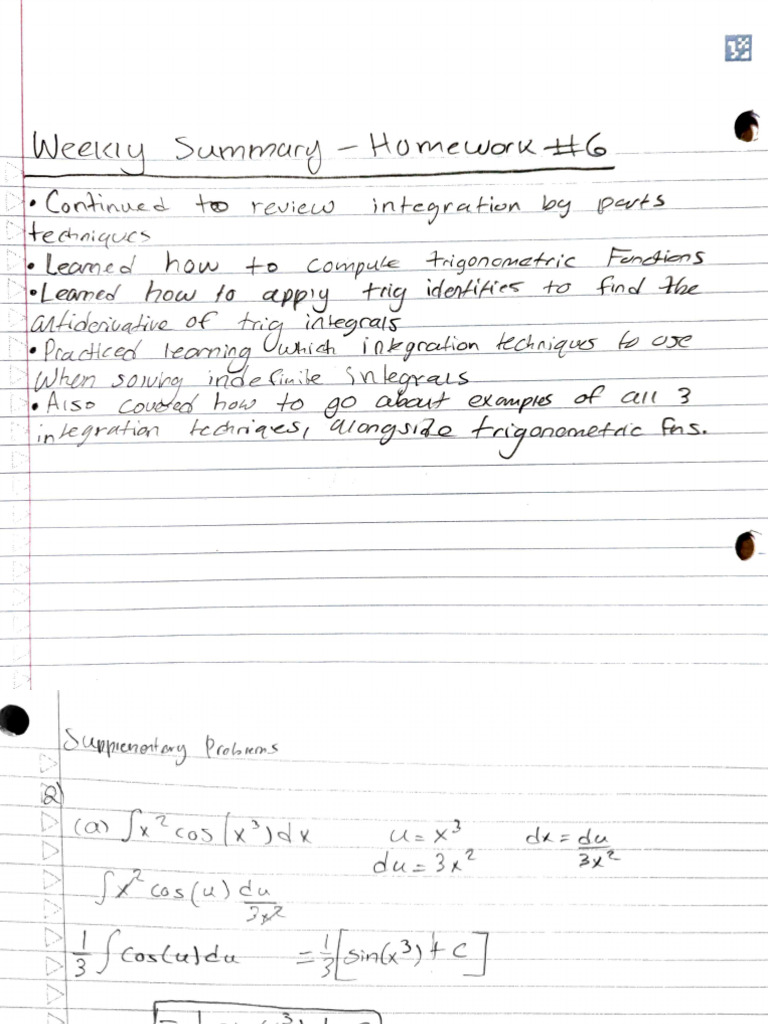 Weekly Summary - Homework #6
• Continued to review integration by parts
techniques
• Learned how to compute trigonometric Functions
• Learned how to apply trig identities to find the
antiderivative of trig integrals
• Practiced learning which integration techniques to use
when solving indefinite integrals
• Also covered how to go about examples of all 3
integration techniqes, alongside trigonometric fns.
Supplementary Problems
2)
(a) ∫x² cos(x³)dx u = x³ dx = du/3x²
du = 3x²
∫x² cos(u) du/3x²
1/3 ∫cos(u)du = 1/3[sin(x³) + C]